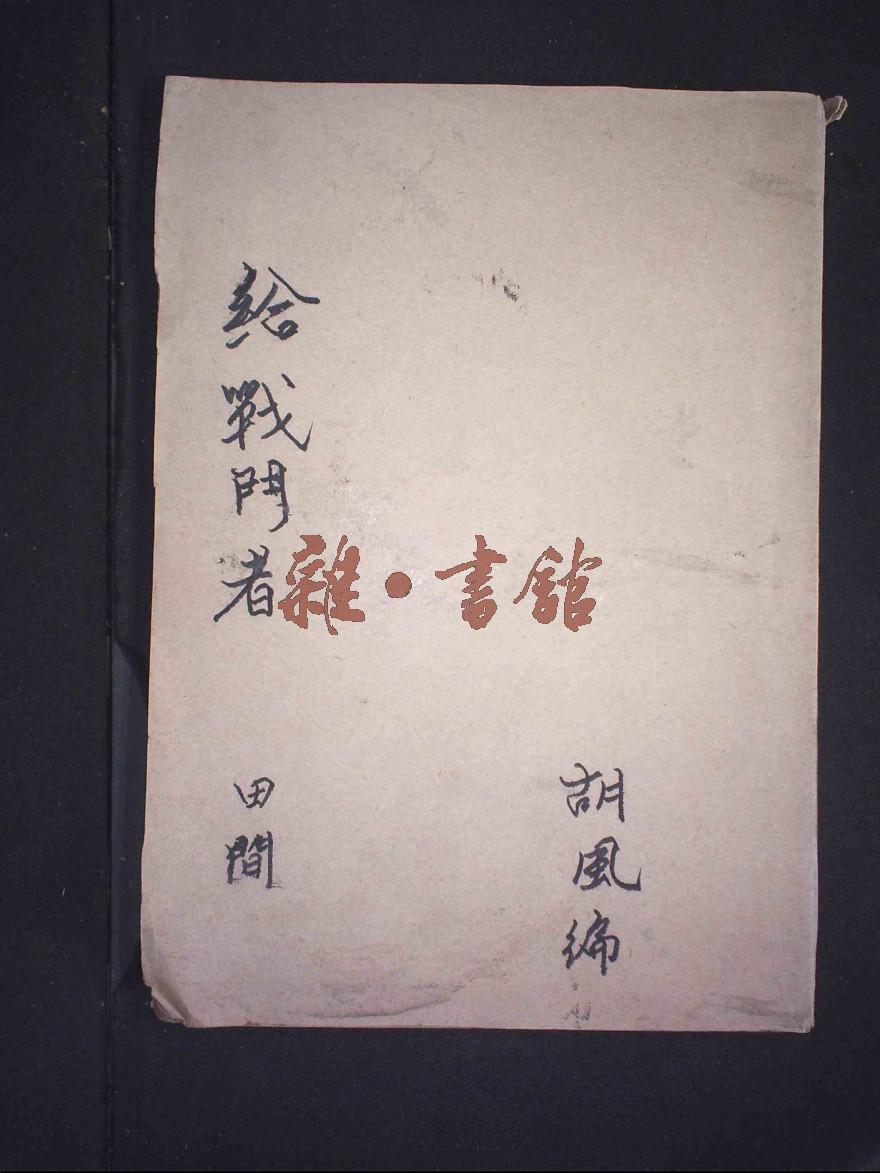 給戰鬥者
田間
胡風編
雜·書館